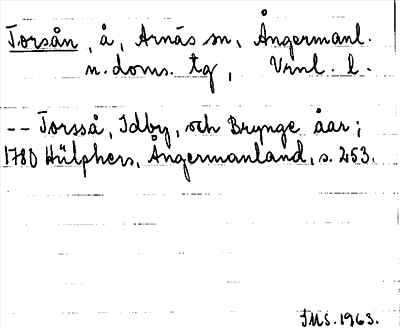 Torsån, å, Arnäs sn, Ångermanl.
n. doms. tg, Vrnl. l.
-- Torsså, Idby, och Brynge åar;
1780 Hülphers, Ångermanland, s. 253.
JMS. 1963.